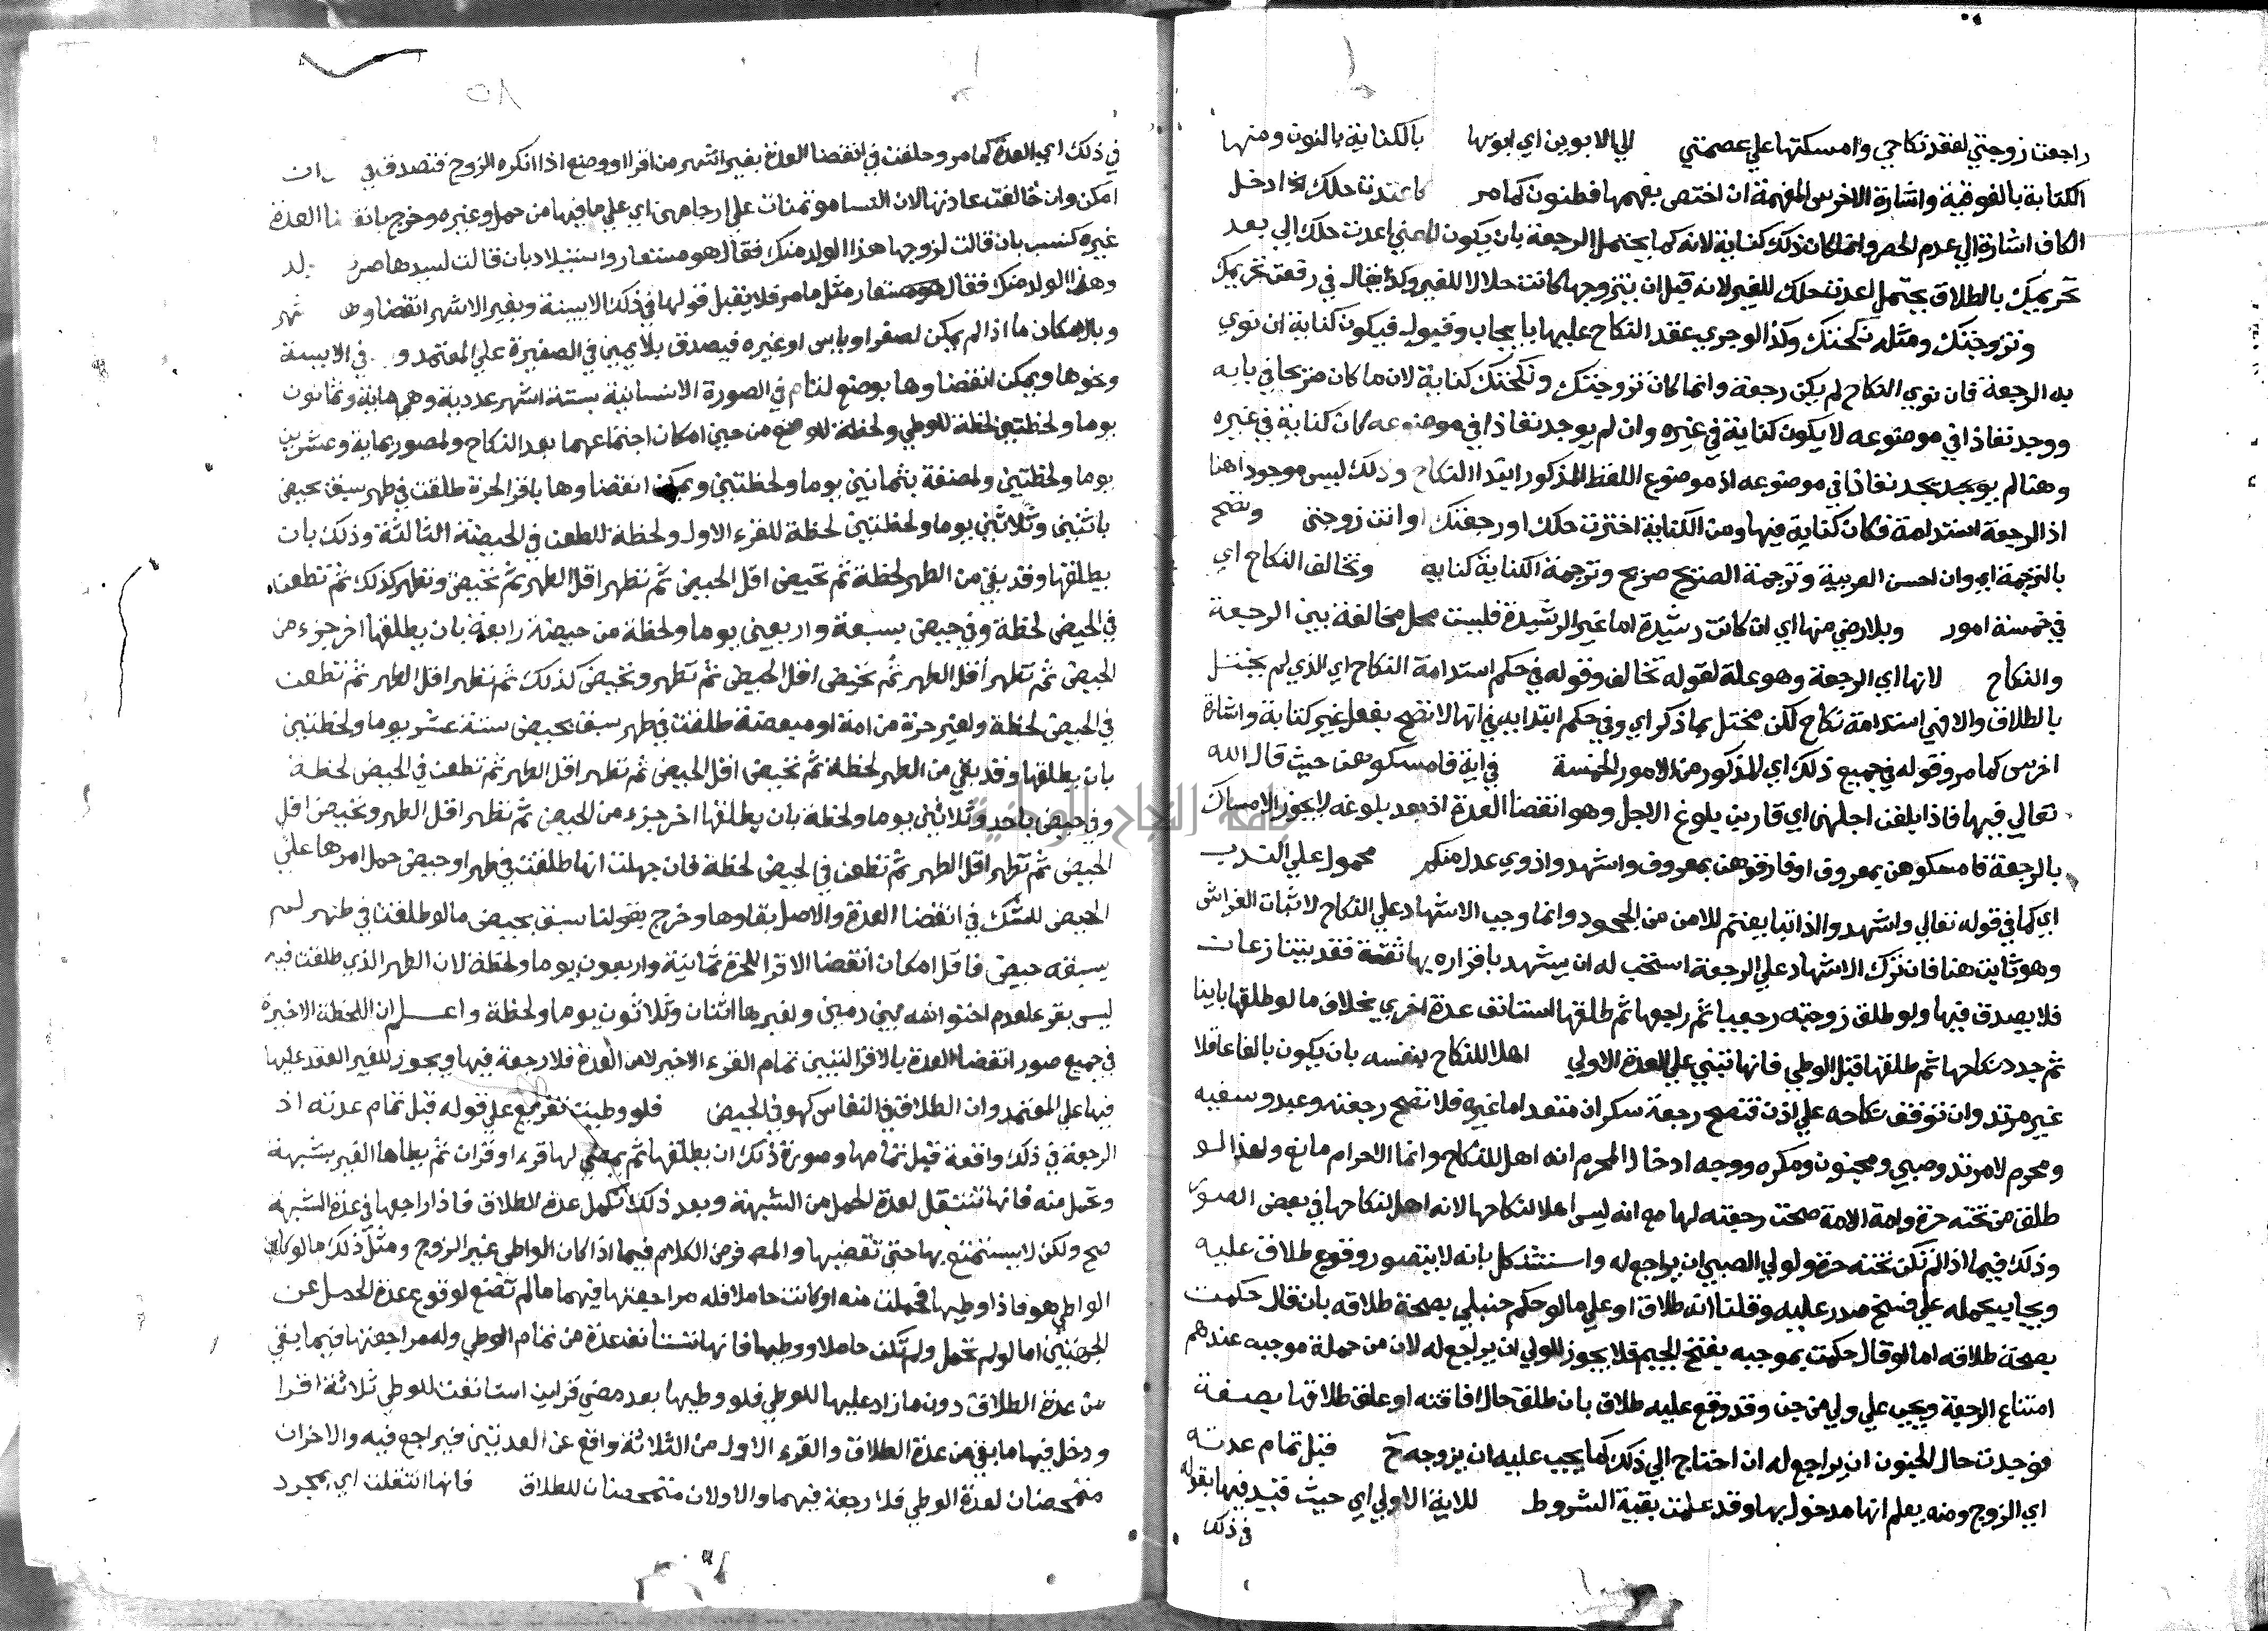 راجعت زوجتي لعقد نكاحي وامسكتها علي عصمتي الي الابوين اي ابويها بالكناية بالنون ومنها
الكتابة بالفوقية واشارة الاخرس المفهمة ان اختص بفهمها فطنون كما مر كاعتدت حلك ادخل
الكاف اشارة الي عدم الحصر وانما كان ذلك كناية لانه كما يحتمل الرجعة بان يكون المعني اعدت حلك الي بعد
تحريمك بالطلاق يحتمل اعدت حلك للغير لانه قبل ان يتزوجها كانت حلالا للغير وكذا يقال في رفعت تحريمك
وتزوجتك ومثله نكحتك وكذا لو جري عقد النكاح عليها بايجاب وقبول فيكون كناية ان نوي
به الرجعة فان نوي النكاح لم يكن رجعة وانما كان تزوجتك ونكحتك كناية لان ما كان صريحا في بابه
ووجد نفاذا في موضوعه لا يكون كناية في غيره وان لم يوجد نفاذا في موضوعه كان كناية في غيره
وهنا لم يوجد نفاذا في موضوعه اذ موضوع اللفظ المذكور ابتدا النكاح وذلك ليس موجودا هنا
اذ الرجعة استدامة فكان كناية فيها ومن الكناية اخترت حلك او رجعتك او انت زوجتي وتصح
بالترجمة اي وان احسن العربية وترجمة الصريح صريح وترجمة الكناية كناية وتخالف النكاح اي
في خمسة امور وبلا رضي منها اي ان كانت رشيدة اما غير الرشيدة فليست محل مخالفة بين الرجعة
والنكاح لانها اي الرجعة وهو علة لقوله تخالف وقوله في حكم استدامة النكاح اي الذي لم يختل
بالطلاق والا فهي استدامة نكاح لكن مختل بما ذكر اي وفي حكم ابتدايه في انها لا تصح بفعل غير كتابة واشارة
اخرس كما مر وقوله في جميع ذلك اي المذكور من الامور الخمسة في اية فامسكوهن حيث قال الله
تعالي فيها فاذا بلغن اجلهن اي قاربن بلوغ الاجل وهو انقضا العدة اذ بعد بلوغه لا يجوز الامساك
بالرجعة فامسكوهن بمعروف او فارقوهن بمعروف واشهدوا ذوي عدل منكم محمول علي الندب
اي كما في قوله تعالي واشهدوا اذا تبايعتم للامن من الجحود وانما وجب الاشهاد علي النكاح لاثبات الفراش
وهو ثابت هنا فان ترك الاشهاد علي الرجعة استحب له ان يشهد باقراره بها ثقة فقد يتنازعان
فلا يصدق فيها ولو طلق زوجته رجعيا ثم راجعها ثم طلقها استانف عدة اخري بخلاف ما لو طلقها باينا
ثم جدد نكاحها ثم طلقها قبل الوطي فانها تبني علي العدة الاولي اهلا للنكاح بنفسه بان يكون بالغا عاقلا
غير مرتد وان توقف نكاحه علي اذن فتصح رجعة سكران متعد اما غيره فلا تصح رجعته وعبد وسفيه
ومحرم لا مرتد وصبي ومجنون ومكره ووجه ادخال المحرم انه اهل للنكاح وانما الاحرام مانع ولهذا لو
طلق من تحته حرة وامة الامة صحت رجعته لها مع انه ليس اهلا لنكاحها لانه اهل لنكاحها في بعض الصور
وذلك فيما اذا لم تكن تحته حرة ولولي الصبي ان يراجع له واستشكل بانه لا يتصور وقوع طلاق عليه
ويجاب بحمله علي فسخ صدر عليه وقلنا انه طلاق او علي ما لو حكم حنبلي بصحة طلاقه بان قال حكمت
بصحة طلاقه اما لو قال حكمت بموجبه بفتح الجيم فلا يجوز للولي ان يراجع له لان من جملة موجبه عندهم
امتناع الرجعة ويجب علي ولي من جن وقد وقع عليه طلاق بان طلق حال افاقته او علق طلاقها بصفة
فوجدت حال الجنون ان يراجع له ان احتاج الي ذلك كما يجب عليه ان يزوجه ح قبل تمام عدته
اي الزوج ومنه يعلم انها مدخول بها وقد علمت بقية الشروط للاية الاولي اي حيث قيد فيها بقوله
في ذلك
٥٨
في ذلك اي العدة كما مر وحلفت في انقضا العدة بغير اشهر من اقرا او وضع اذا انكره الزوج فتصدق في ان
امكن وان خالفت عادتها لان النسا مؤتمنات علي ارحامهن اي علي ما فيها من حمل وغيره وخرج بانقضا العدة
غيره كنسب بان قالت لزوجها هذا الولد منك فقال هو مستعار واستيلاد بان قالت لسيدها صرت
وهذا الولد منك فقال مستعار مثل ما مر فلا يقبل قولها في ذلك الا ببينة وبغير الاشهر انقضاوها
وبالامكان ما اذا لم يمكن لصغر او ياس او غيره فيصدق بلا يمين في الصغيرة علي المعتمد و في الايسة
ونحوها ويمكن انقضاوها بوضع لتام في الصورة الانسانية بستة اشهر عددية وهي ماية وثمانون
يوما ولحظتين لحظة للوطي ولحظة للوضع من حين امكان اجتماعهما بعد النكاح ولمصور بماية وعشرين
يوما ولحظتين ولمضغة بثمانين يوما ولحظتين ويمكن انقضاوها باقرا لحرة طلقت في طهر سبق بحيض
باثنين وثلاثين يوما ولحظتين لحظة للقرء الاول ولحظة للطعن في الحيضة الثالثة وذلك بان
يطلقها وقد بقي من الطهر لحظة ثم تحيض اقل الحيض ثم تطهر اقل الطهر ثم تحيض وتطهر كذلك ثم تطعن
في الحيض لحظة وفي حيض بسبعة واربعين يوما ولحظة من حيضة رابعة بان يطلقها اخر جزء من
الحيض ثم تطهر اقل الطهر ثم تحيض اقل الحيض ثم تطهر وتحيض كذلك ثم تطهر اقل الطهر ثم تطعن
في الحيض لحظة ولغير حرة من امة او مبعضة طلقت في طهر سبق بحيض ستة عشر يوما ولحظتين
بان يطلقها وقد بقي من الطهر لحظة ثم تحيض اقل الحيض ثم تطهر اقل الطهر ثم تطعن في الحيض لحظة
وفي حيض باحد وثلاثين يوما ولحظة بان يطلقها اخر جزء من الحيض ثم تطهر اقل الطهر وتحيض اقل
الحيض ثم تطهر اقل الطهر ثم تطعن في الحيض لحظة فان جهلت انها طلقت في طهر او حيض حمل امرها علي
الحيض للشك في انقضا العدة والاصل بقاوها وخرج بقولنا سبق بحيض ما لو طلقت في طهر لم
يسبقه حيض فاقل امكان انقضا الاقرا للحرة ثمانية واربعون يوما ولحظة لان الطهر الذي طلقت فيه
ليس بقرء لعدم احتواشه بين دمين ولغيرها اثنان وثلاثون يوما ولحظة واعلم ان اللحظة الاخيرة
في جميع صور انقضا العدة بالاقرا لتبين تمام القرء الاخير لا من العدة فلا رجعة فيها ويجوز للغير العقد عليها
فيها علي المعتمد وان الطلاق في النفاس كهو في الحيض فلو وطيت تفريع علي قوله قبل تمام عدته اذ
الرجعة في ذلك واقعة قبل تمامها وصورة ذلك ان يطلقها ثم يمضي لها قرء او قران ثم يطاها الغير بشبهة
وتحمل منه فانها تنتقل لعدة الحمل من الشبهة وبعد ذلك تكمل عدة الطلاق فاذا راجعها في عدة الشبهة
صح ولكن لا يستمتع بها حتي تقضيها والمص فرض الكلام فيما اذا كان الواطي غير الزوج ومثل ذلك ما لو كان
الواطي هو فاذا وطيها فحملت منه او كانت حاملا فله مراجعتها فيهما ما لم تضع لوقوع عدة الحمل عن
الجهتين اما لو لم تحمل ولم تكن حاملا ووطيها فانها تستانف عدة من تمام الوطي وله مراجعتها فيما بقي
من عدة الطلاق دون ما زاد عليها للوطي فلو وطيها بعد مضي قراين استانفت للوطي ثلاثة اقرا
ودخل فيها ما بقي من عدة الطلاق والقرء الاول من الثلاثة واقع عن العدتين فيراجع فيه والاخران
متمحضان لعدة الوطي فلا رجعة فيهما والاولان متمحضان للطلاق فانها انتقلت اي بمجرد